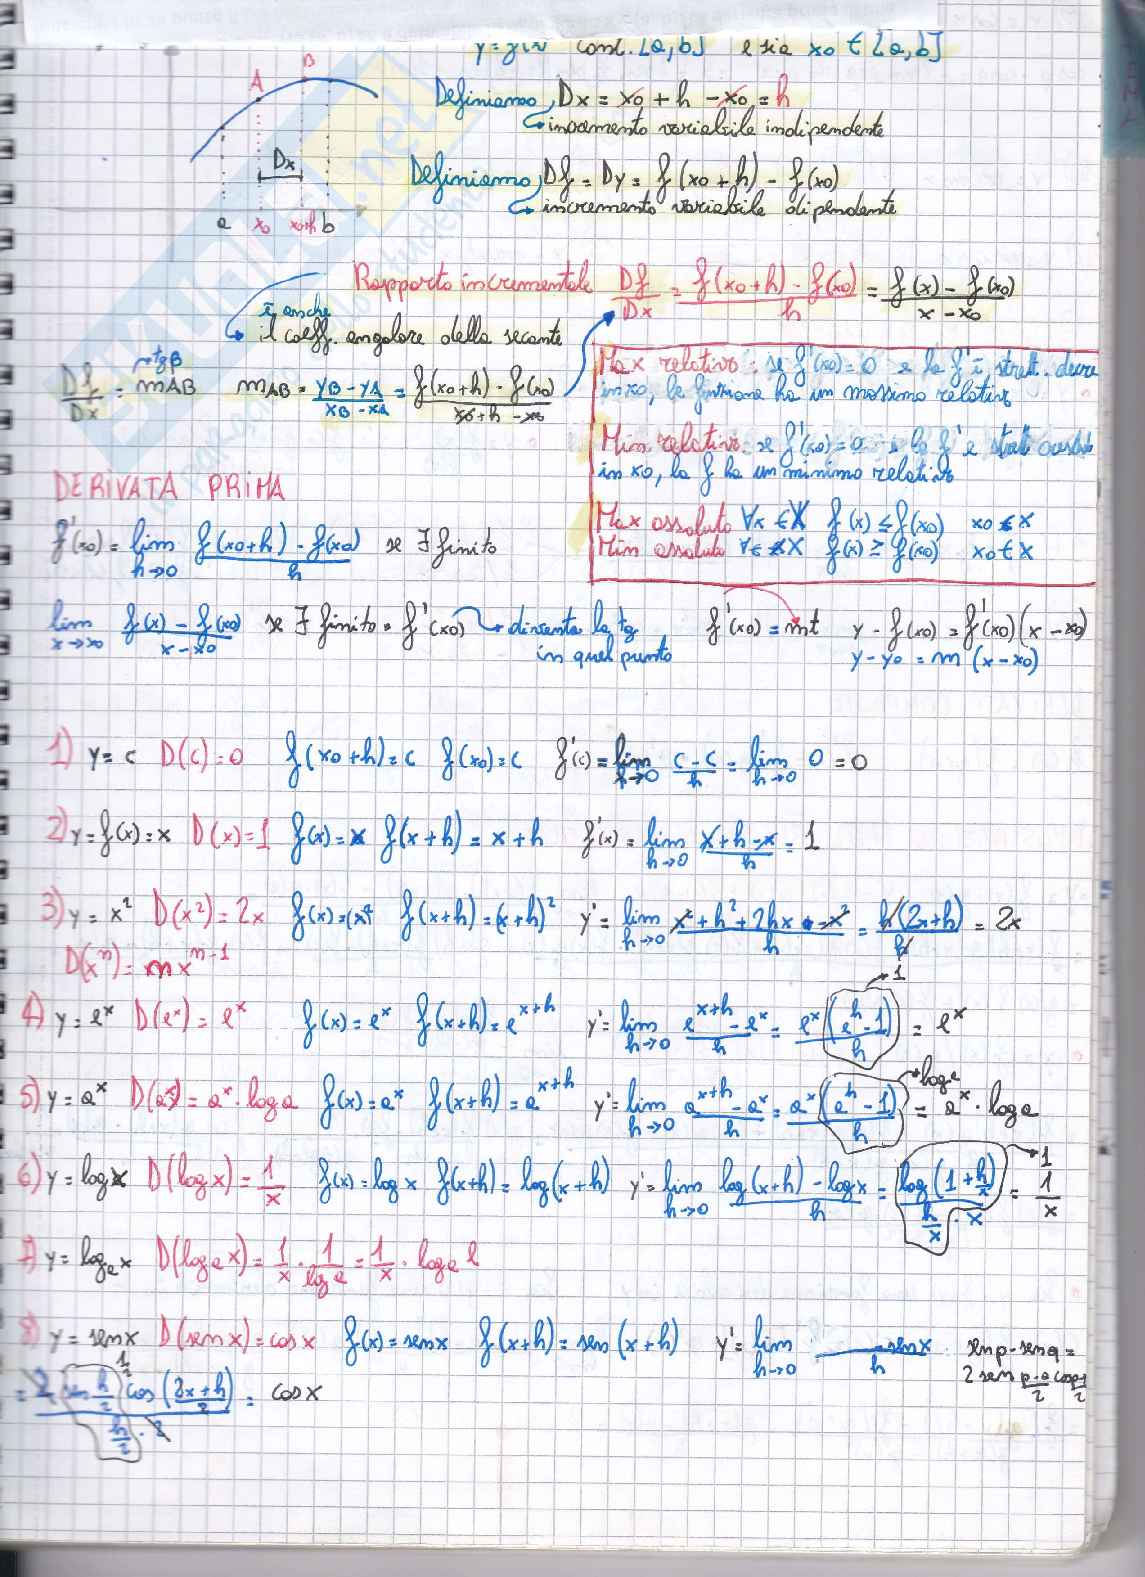 cont. [a,b] e sia x0 ∈ [a,b]
A B
Dx
a x0 x0+h b
Definiamo, Dx = x0 + h - x0 = h
incremento variabile indipendente
Definiamo, Df = Dy = f(x0+h) - f(x0)
incremento variabile dipendente
Rapporto incrementale Df/Dx = f(x0+h) - f(x0)/h = f(x) - f(x0)/x - x0
è anche
il coeff. angolare della secante
Df/Dx = mAB → tgβ mAB = yB - yA/xB - xA = f(x0+h) - f(x0)/x0+h - x0
Max relativo: se f'(x0) = 0 e la f' è strett. decre
in x0, la funzione ha un massimo relativo
Min relativo: se f'(x0) = 0 e la f' è strett
in x0, la f ha un minimo relativo
Max assoluto ∀x ∈ X f(x) ≤ f(x0) x0 ∈ X
Min assoluto ∀ ∈ X f(x) ≥ f(x0) x0 ∈ X
DERIVATA PRIMA
f'(x0) = lim h→0 f(x0+h) - f(x0)/h se ∃ finito
lim x→x0 f(x) - f(x0)/x - x0 se ∃ finito = f'(x0) → diventa la tg
in quel punto
f'(x0) = mt y - f(x0) = f'(x0)(x - x0)
y - y0 = m (x - x0)
1) y = c D(c) = 0 f(x0+h) = c f(x0) = c f'(c) = lim h→0 c - c/h = lim h→0 0 = 0
2) y = f(x) = x D(x) = 1 f(x) = x f(x+h) = x + h f'(x) = lim h→0 x + h - x/h = 1
3) y = x² D(x²) = 2x f(x) = x² f(x+h) = (x+h)² y' = lim h→0 x² + h² + 2hx - x²/h = h(2x+h)/h = 2x
D(xⁿ) = n xⁿ⁻¹
4) y = eˣ D(eˣ) = eˣ f(x) = eˣ f(x+h) = eˣ⁺ʰ y' = lim h→0 eˣ⁺ʰ - eˣ/h = eˣ(eʰ - 1)/h → 1 = eˣ
5) y = aˣ D(aˣ) = aˣ · log a f(x) = aˣ f(x+h) = aˣ⁺ʰ y' = lim h→0 aˣ⁺ʰ - aˣ/h = aˣ(aʰ - 1)/h → log a = aˣ · log a
6) y = log x D(log x) = 1/x f(x) = log x f(x+h) = log(x+h) y' = lim h→0 log(x+h) - log x/h = log(1 + h/x)/h/x · x → 1 = 1/x
7) y = logₐ x D(logₐ x) = 1/x · 1/log a = 1/x · logₐ e
8) y = sen x D(sen x) = cos x f(x) = sen x f(x+h) = sen(x+h) y' = lim h→0 - sen x/h
sen p - sen q =
2 sen p-q/2 cos p/2
= 2 sen h/2 cos(2x+h/2)/h/2 · 2 → 1 = cos x